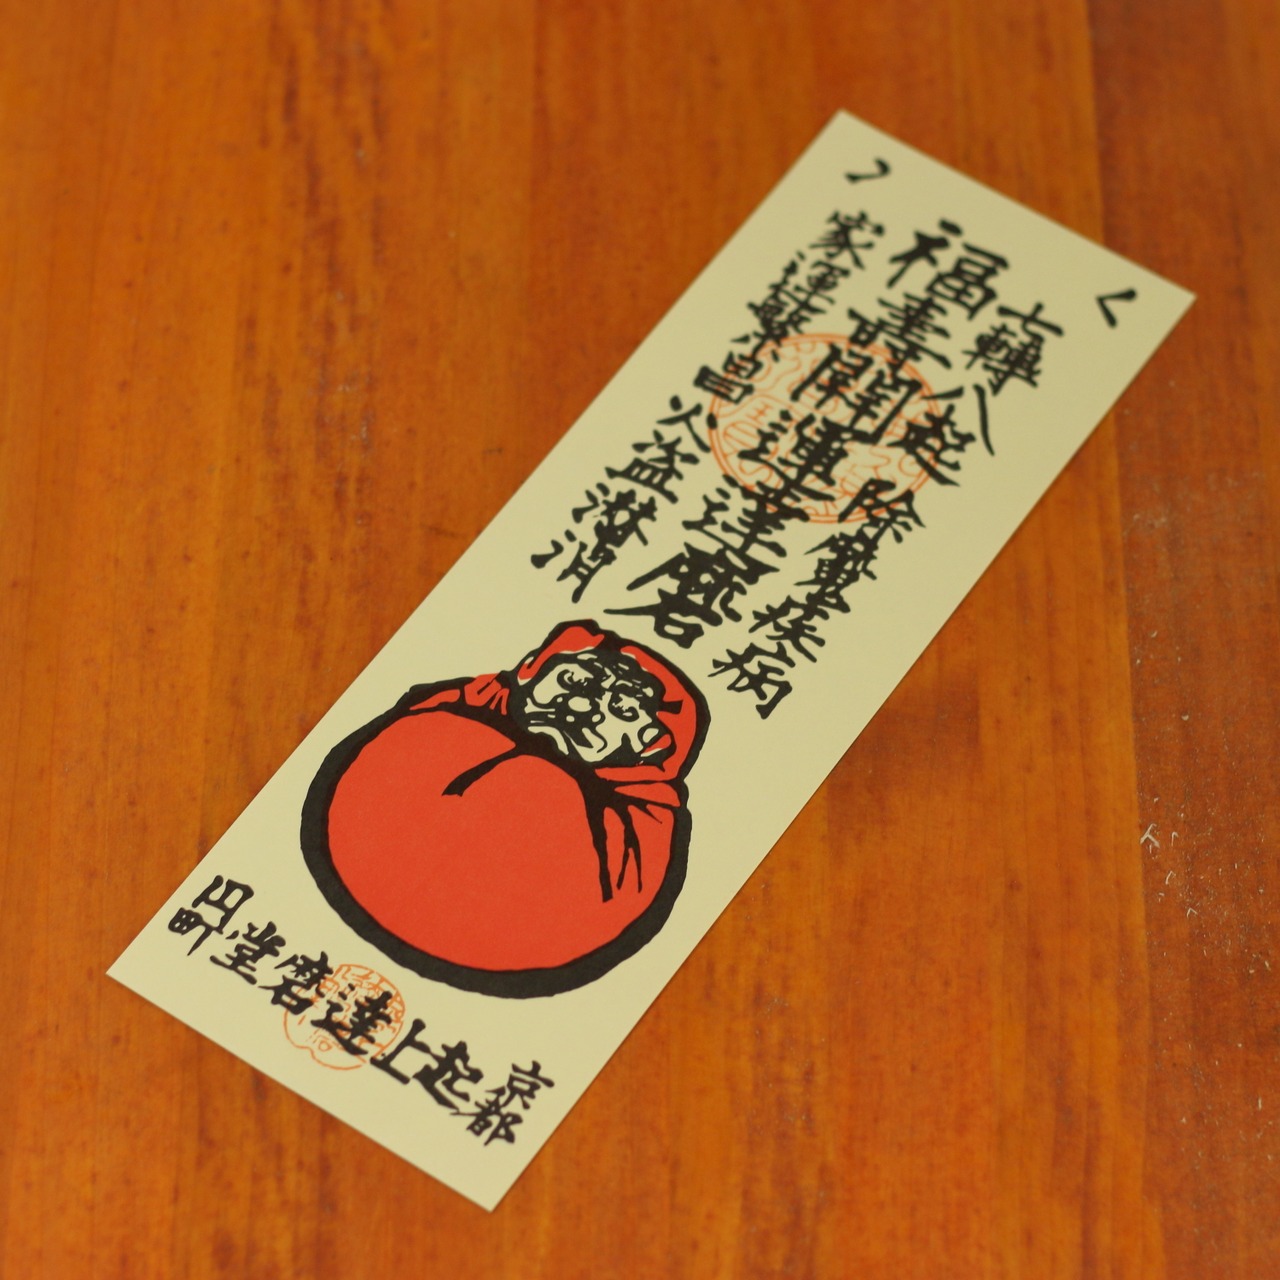 七轉八起
除疾病
福壽開運達磨
家運繁昌
火盗潜消
京都
起上達磨堂
円町